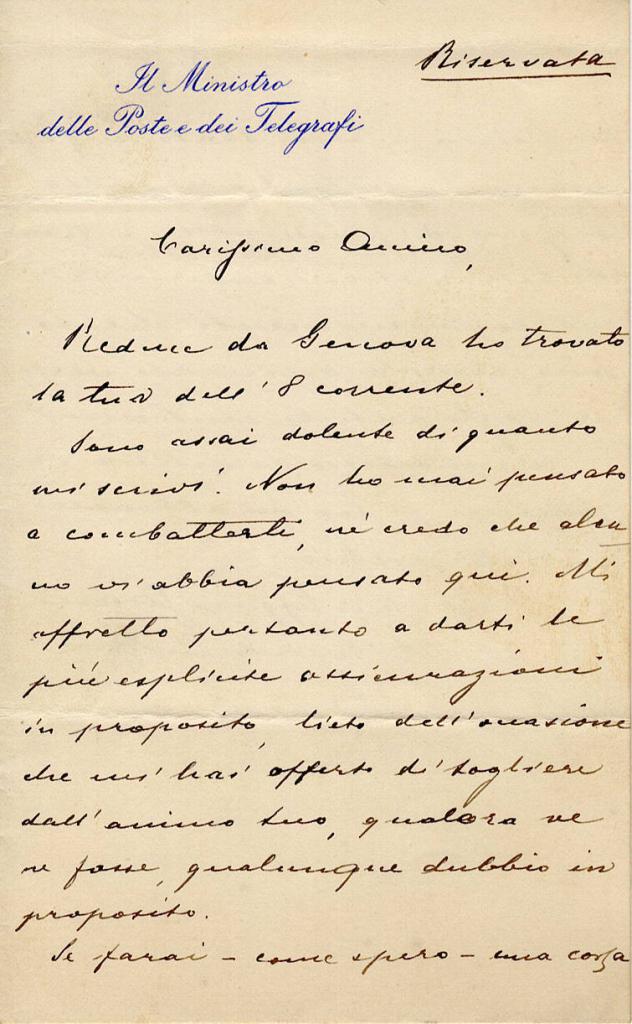 Riservata
Il Ministro
delle Poste e dei Telegrafi
Carissimo Amico,
Reduce da Genova ho trovato
la tua dell' 8 corrente.
Sono assai dolente di quanto
mi scrivi. Non ho mai pensato
a combatterti, nè credo che alcu
no vi abbia pensato qui. Mi
affretto pertanto a darti le
più esplicite assicurazioni
in proposito, lieto dell'occasione
che mi hai offerto di togliere
dall'animo tuo, qualora ve
ne fosse, qualunque dubbio in
proposito.
Se farai - come spero - una corsa